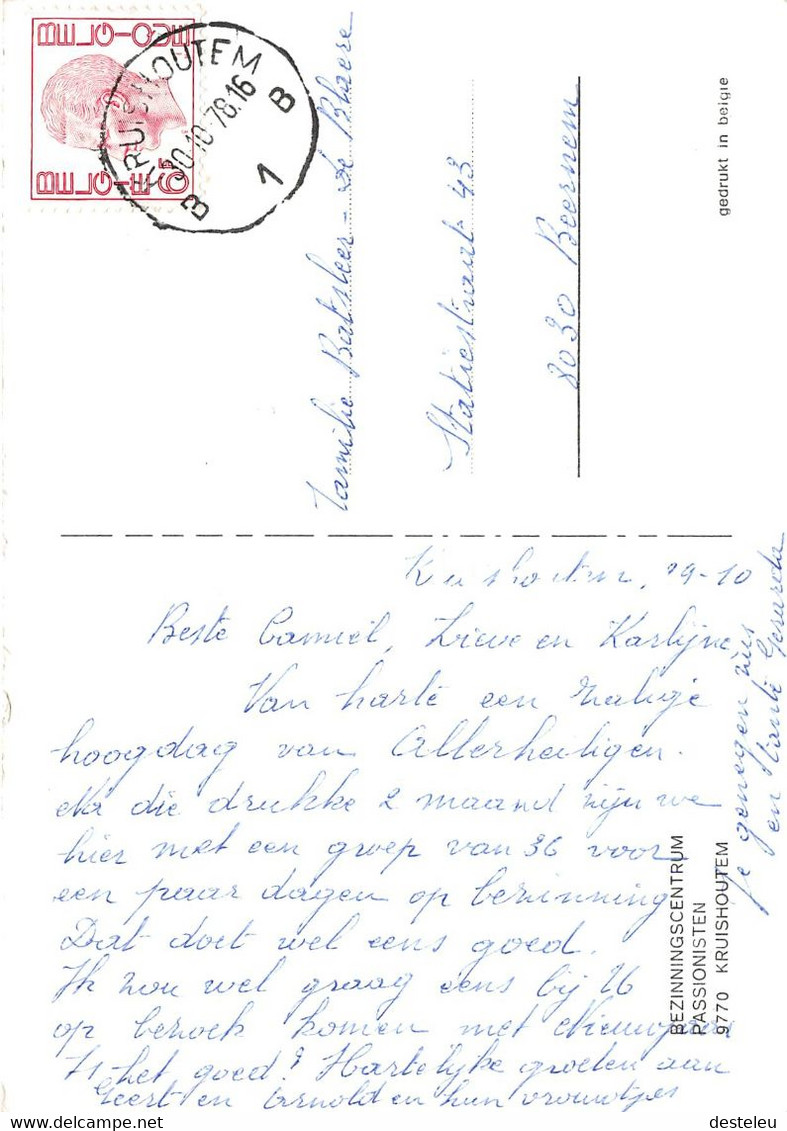 BELGIQUE
BELGIE
KRUISHOUTEM
10-10-78.16
B 1 B
Familie Batsleer - De Blaere
Statiestraat 43
8030 Beernem
gedrukt in belgie
Kruishoutem, 29-10
Beste Camiel, Lieve en Karlijne,
Van harte een zalige
hoogdag van Allerheiligen.
Na die drukke 2 maand zijn we
hier met een groep van 36 voor
een paar dagen op bezinning
Dat doet wel eens goed.
Ik zou wel graag eens bij U
op bezoek komen met Nieuwjaar
Is het goed? Hartelijke groeten aan
Geert en Arnold en hun vrouwtjes
Je genegen
en Tante Gerarda
BEZINNINGSCENTRUM
PASSIONISTEN
9770 KRUISHOUTEM
delcampe.net
desteleu